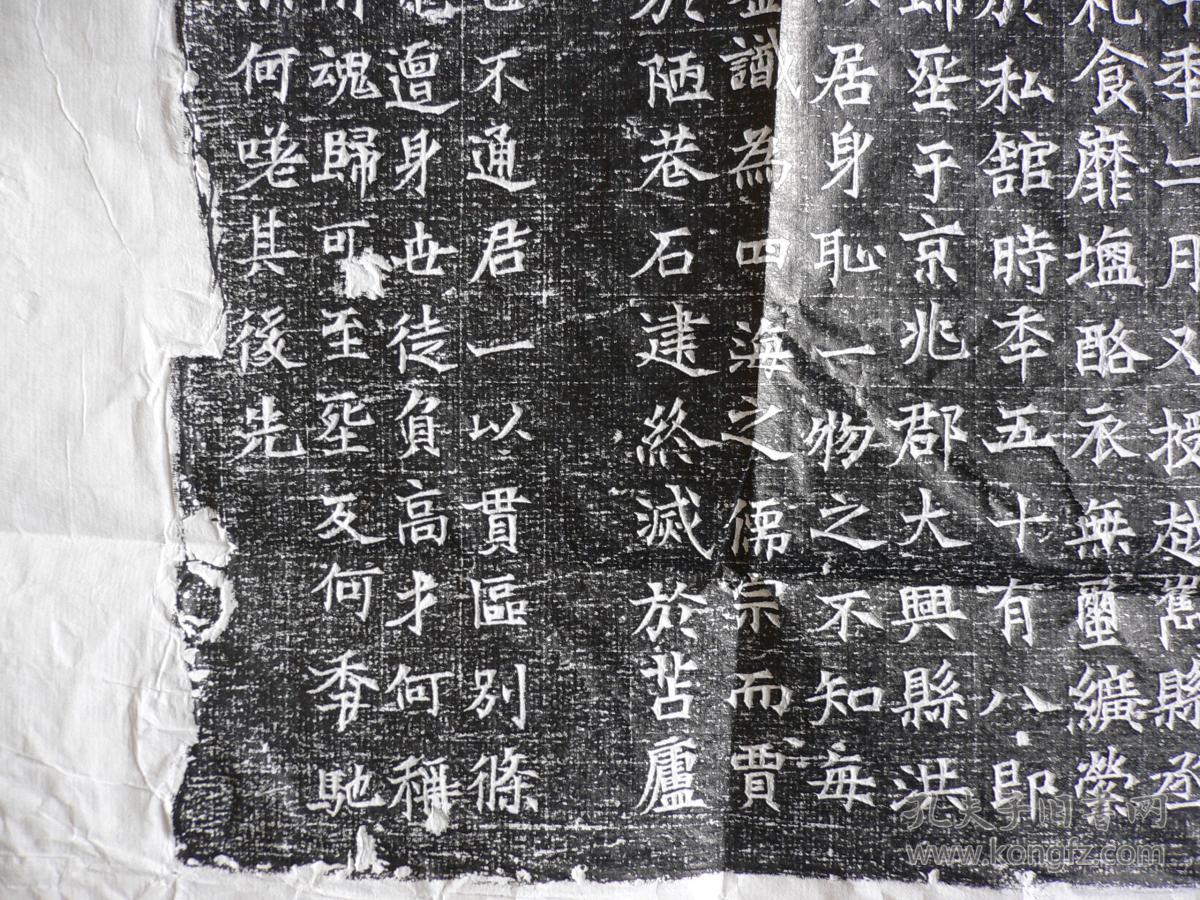 年一月又授越巂縣丞
礼食靡塩酪衣無蠒纊榮
於私舘時年五十有八即
歸塟于京兆郡大興縣洪
居身恥一物之不知每
識為四海之儒宗而賈
於陋巷石建終滅於苫廬
不通居一以貫區別條
邅身世徒負高才何稱
魂歸可至何馳
何嗟其後先
孔夫子旧书网
www.kongfz.com